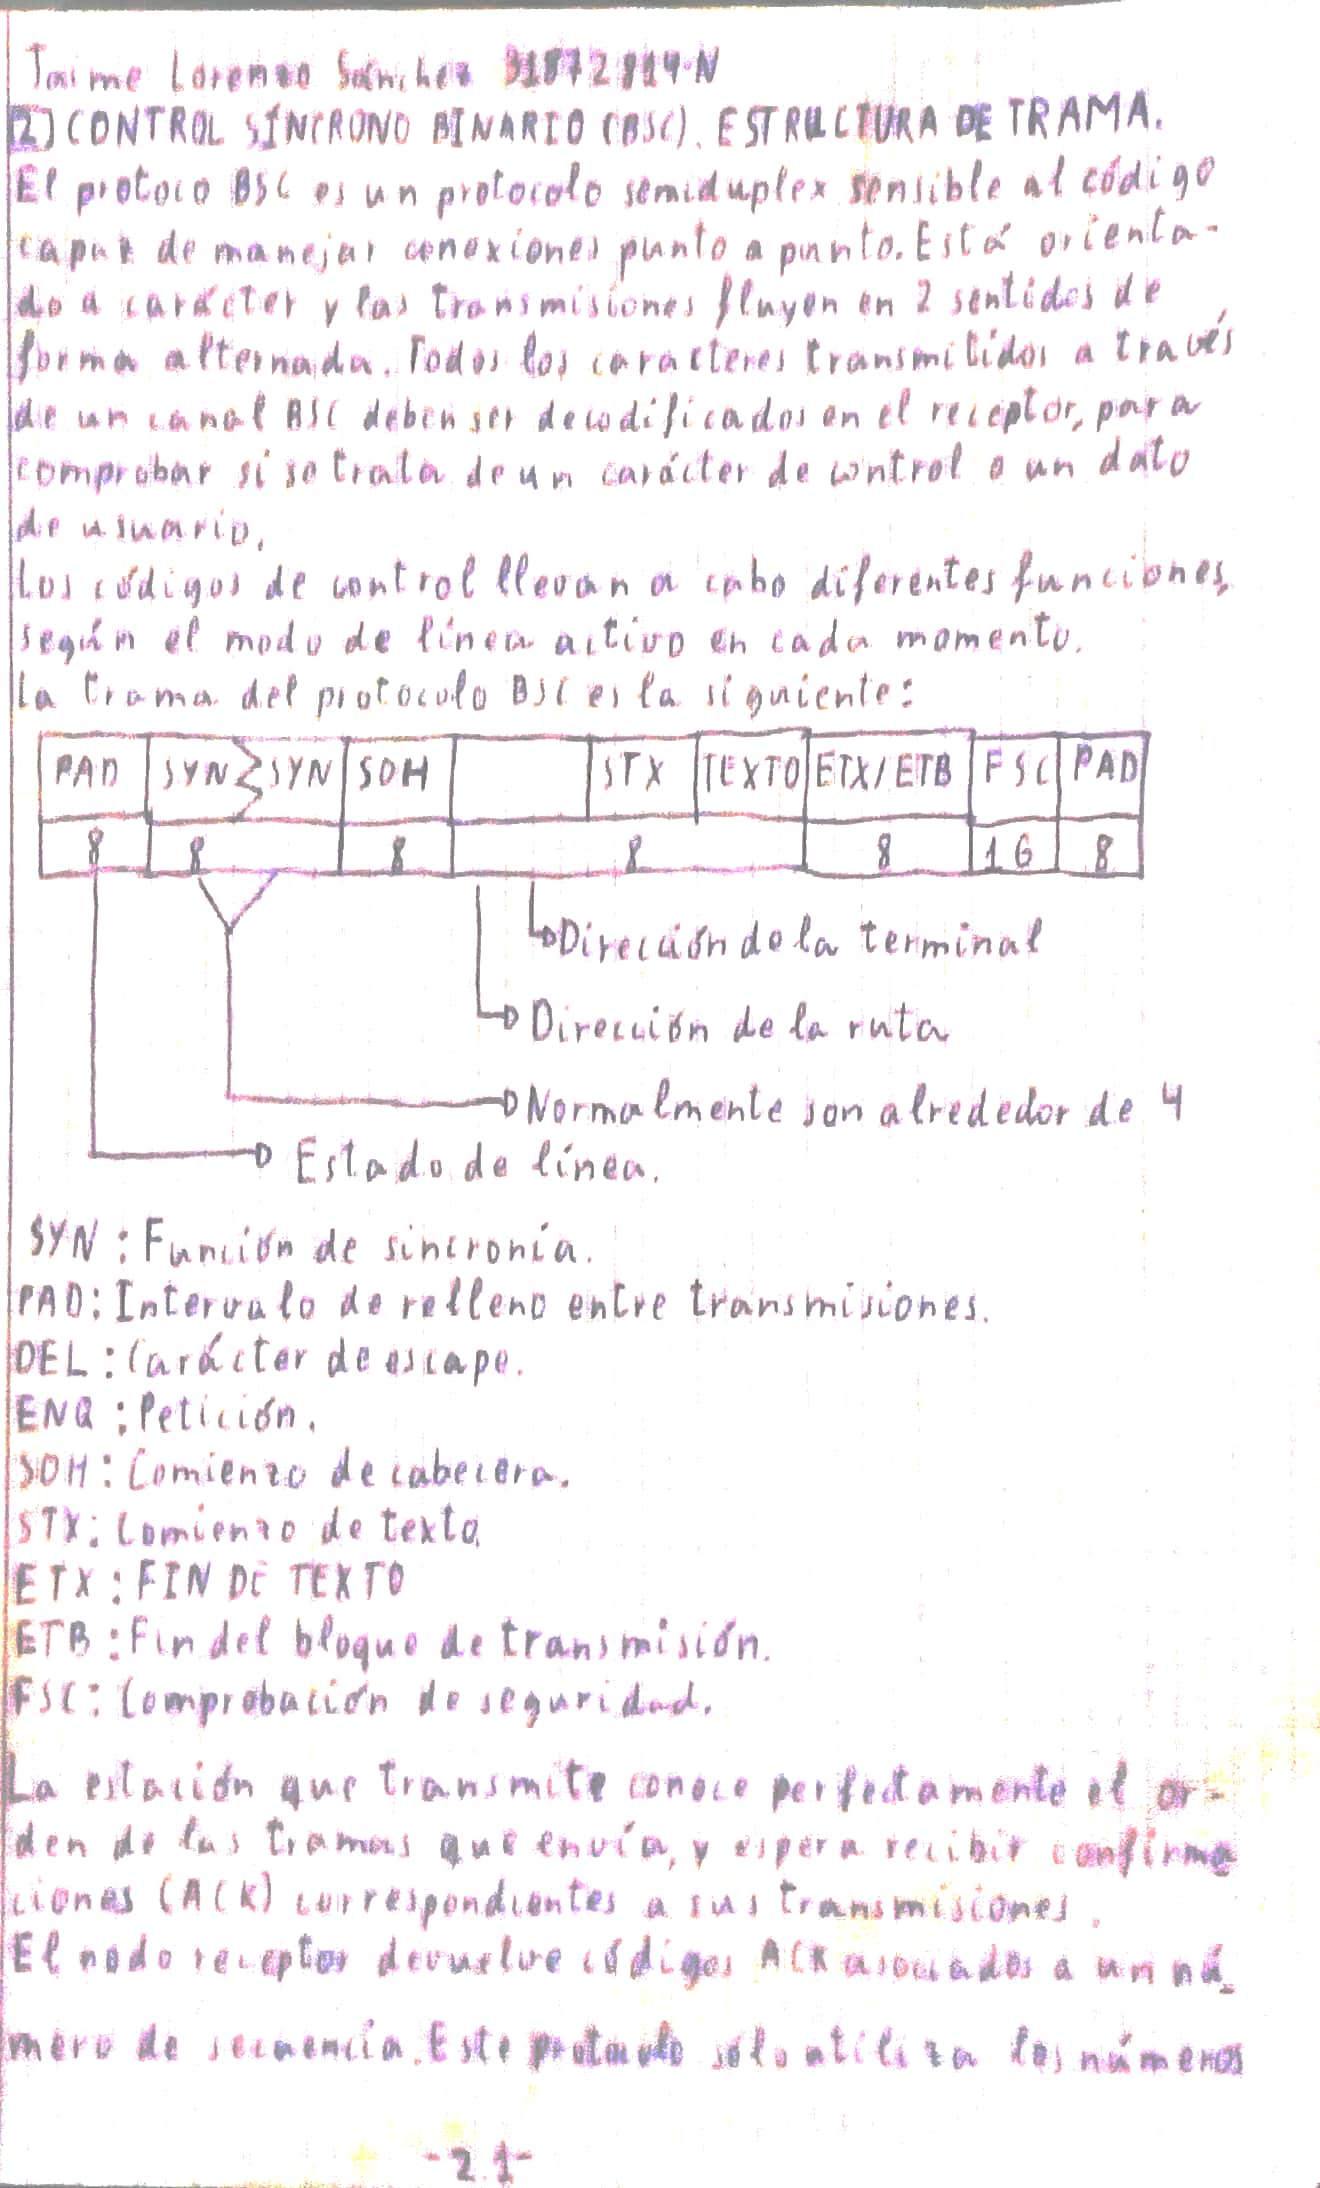 Jaime Lorenzo Sánchez
2) CONTROL SÍNCRONO BINARIO (BSC). ESTRUCTURA DE TRAMA.
El protoco BSC es un protocolo semiduplex sensible al código
capaz de manejar conexiones punto a punto. Está orienta-
do a carácter y las transmisiones fluyen en 2 sentidos de
forma alternada. Todos los caracteres transmitidos a través
de un canal BSC deben ser decodificados en el receptor, para
comprobar si se trata de un carácter de control o un dato
de usuario.
Los códigos de control llevan a cabo diferentes funciones,
según el modo de línea activo en cada momento.
La trama del protocolo BSC es la siguiente:
PAD SYN SYN SOH STX TEXTO ETX/ETB FSC PAD
8 8 8 8 8 16 8
Dirección de la terminal
Dirección de la ruta
Normalmente son alrededor de 4
Estado de línea.
SYN: Función de sincronía.
PAD: Intervalo de relleno entre transmisiones.
DEL: Carácter de escape.
ENQ: Petición.
SOH: Comienzo de cabecera.
STX: Comienzo de texto
ETX: FIN DE TEXTO
ETB: Fin del bloque de transmisión.
FSC: Comprobación de seguridad.
La estación que transmite conoce perfectamente el or-
den de las tramas que envía, y espera recibir confirma
ciones (ACK) correspondientes a sus transmisiones.
El nodo receptor devuelve códigos ACK asociados a un nú-
mero de secuencia. Este protocolo sólo utiliza los números
-2.1-